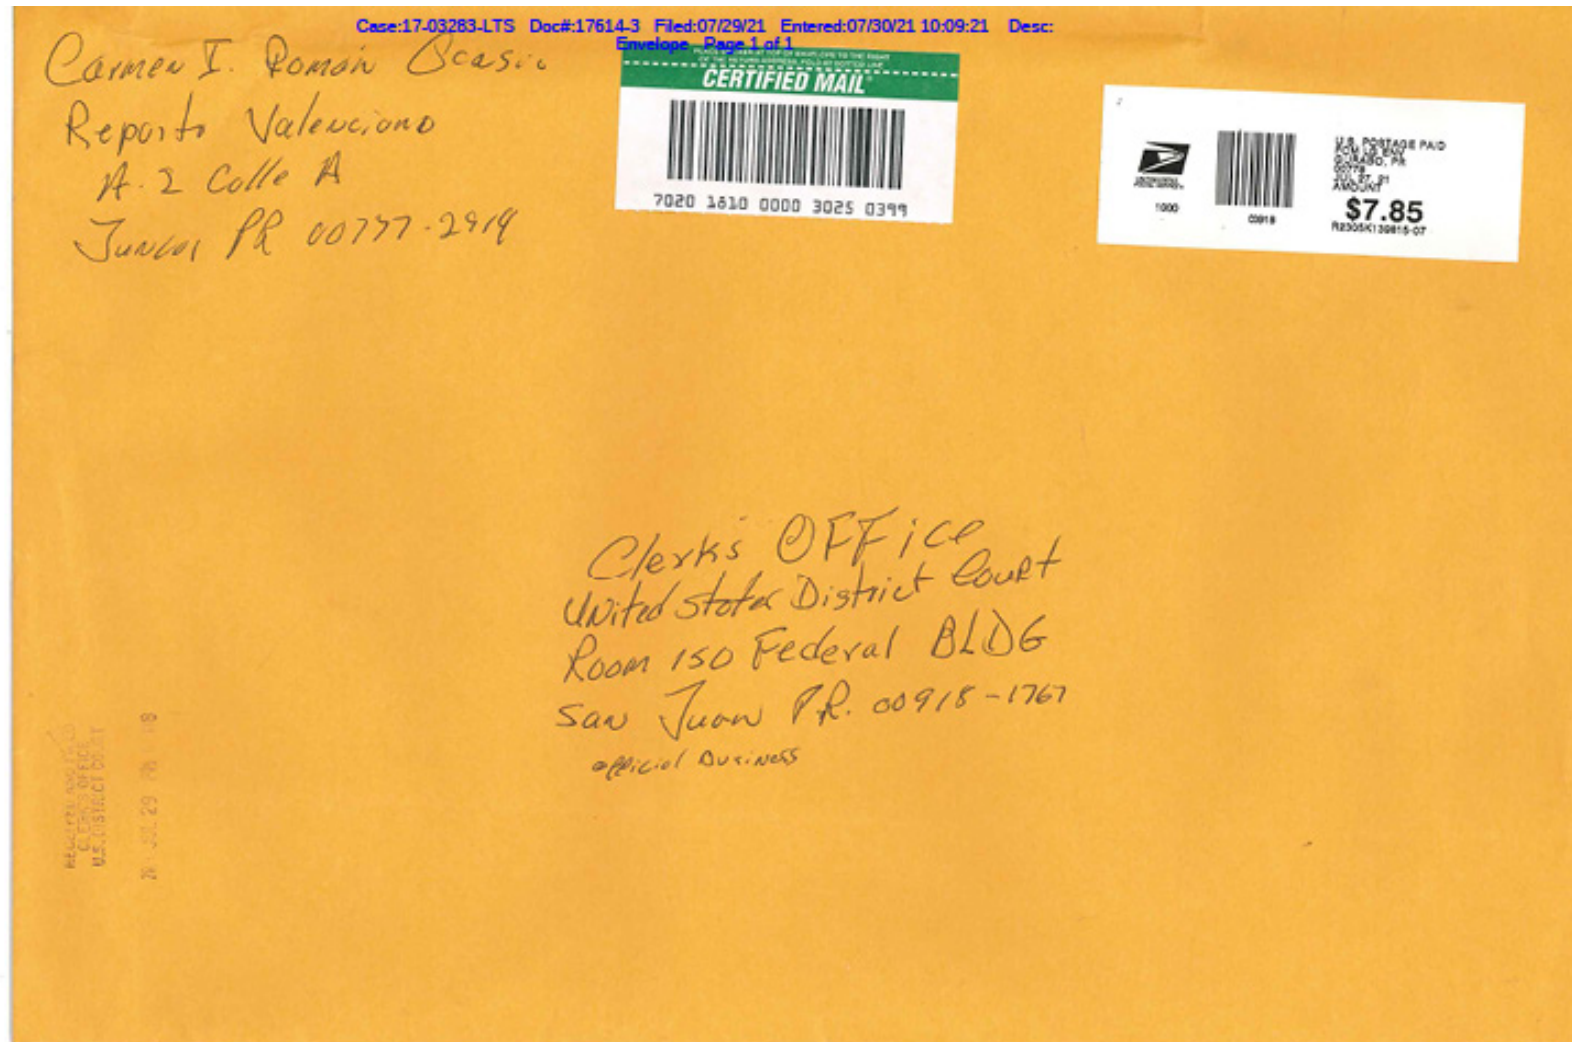 Case:17-03283-LTS Doc#:17614-3 Filed:07/29/21 Entered:07/30/21 10:09:21 Desc:
Envelope Page 1 of 1
Carmen I. Román Ocasio
Reparto Valenciano
A-2 Calle A
Juncos PR 00777-2919
CERTIFIED MAIL
7020 1810 0000 3025 0399
U.S. POSTAGE PAID
FCM LG ENV
GURABO, PR
00778
JUL 27, 21
AMOUNT
$7.85
R2305K139815-07
1000
00918
Clerk's OFFice
United States District Court
Room 150 Federal BLDG
San Juan P.R. 00918-1767
official Business
RECEIVED AND FILED
CLERK'S OFFICE
U.S. DISTRICT COURT
JUL 29 PM